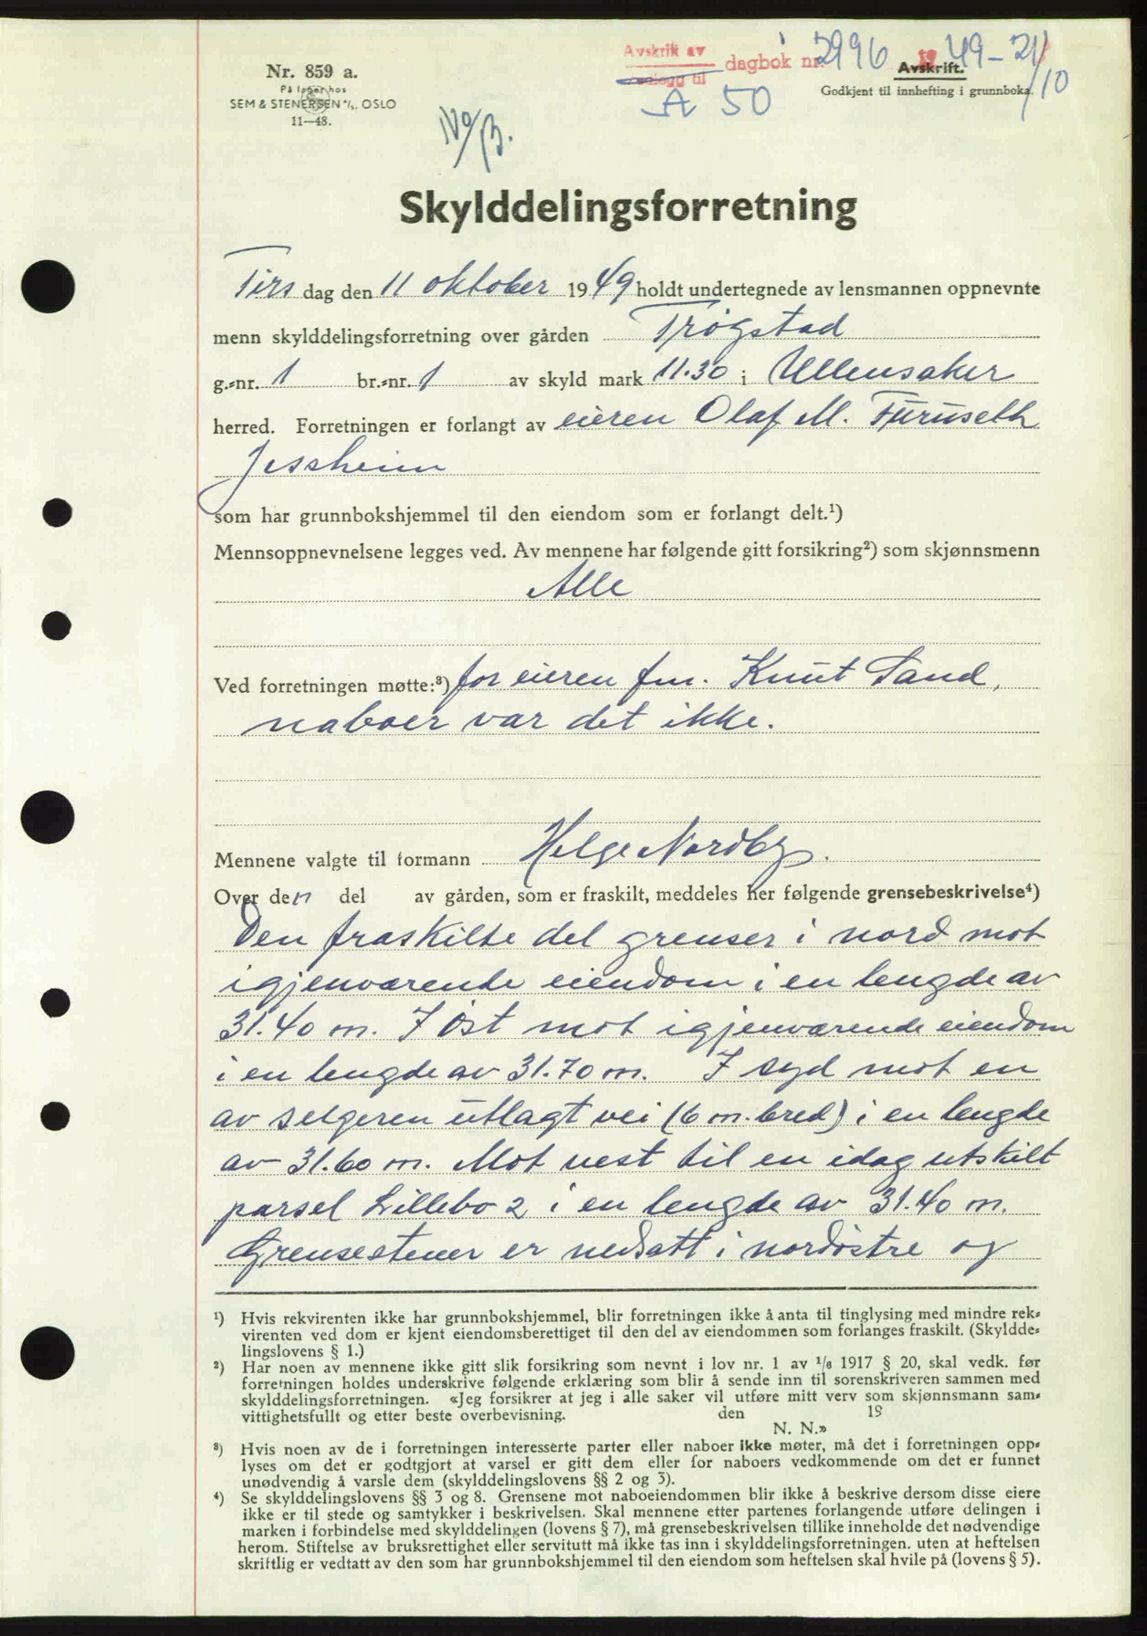 Nr. 859 a.
På lager hos
SEM & STENERSEN A/S. OSLO
11—48.
Avskrift av
dagbok nr. 2996 1949 - 21/10
A 50
Avskrift.
Godkjent til innhefting i grunnboka.
Skylddelingsforretning
Tirsdag den 11 oktober 1949 holdt undertegnede av lensmannen oppnevnte
menn skylddelingsforretning over gården Trøgstad
g.-nr. 1 br.-nr. 1 av skyld mark 11.30 i Ullensaker
herred. Forretningen er forlangt av eieren Olaf M. Furuseth
Jessheim
som har grunnbokshjemmel til den eiendom som er forlangt delt.¹)
Mennsoppnevnelsene legges ved. Av mennene har følgende gitt forsikring²) som skjønnsmenn
Alle
Ved forretningen møtte:³) for eieren fm. Knut Sand,
naboer var det ikke.
Mennene valgte til formann Helge Nordby.
Over den del av gården, som er fraskilt, meddeles her følgende grensebeskrivelse⁴)
Den fraskilte del grenser i nord mot
igjenværende eiendom i en lengde av
31.40 m. I øst mot igjenværende eiendom
i en lengde av 31.70 m. I syd mot en
av selgeren utlagt vei (6 m. bred) i en lengde
av 31.60 m. Mot vest til en idag utskilt
parsel Lillebo 2 i en lengde av 31.40 m.
Grensestener er nedsatt i nordøstre og
¹) Hvis rekvirenten ikke har grunnbokshjemmel, blir forretningen ikke å anta til tinglysing med mindre rek-
virenten ved dom er kjent eiendomsberettiget til den del av eiendommen som forlanges fraskilt. (Skyldde-
lingslovens § 1.)
²) Har noen av mennene ikke gitt slik forsikring som nevnt i lov nr. 1 av 1/6 1917 § 20, skal vedk. før
forretningen holdes underskrive følgende erklæring som blir å sende inn til sorenskriveren sammen med
skylddelingsforretningen. «Jeg forsikrer at jeg i alle saker vil utføre mitt verv som skjønnsmann sam-
vittighetsfullt og etter beste overbevisning. den 19
N. N.»
³) Hvis noen av de i forretningen interesserte parter eller naboer ikke møter, må det i forretningen opp-
lyses om det er godtgjort at varsel er gitt dem eller for naboers vedkommende om det er funnet
unødvendig å varsle dem (skylddelingslovens §§ 2 og 3).
⁴) Se skylddelingslovens §§ 3 og 8. Grensene mot naboeiendommen blir ikke å beskrive dersom disse eiere
ikke er til stede og samtykker i beskrivelsen. Skal mennene etter partenes forlangende utføre delingen i
marken i forbindelse med skylddelingen (lovens § 7), må grensebeskrivelsen tillike inneholde det nødvendige
herom. Stiftelse av bruksrettighet eller servitutt må ikke tas inn i skylddelingsforretningen. uten at heftelsen
skriftlig er vedtatt av den som har grunnbokshjemmel til den eiendom som heftelsen skal hvile på (lovens § 5).